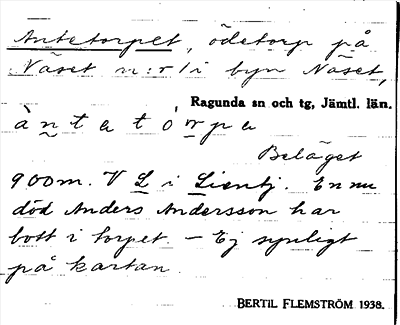 Antetorpet, ödetorp på
Näset n:r 1 i byn Näset,
Ragunda sn och tg, Jämtl. län.
à n t e t ó rp e
Beläget
900m. V L i Lientj. En nu
död Anders Andersson har
bott i torpet. - Ej synligt
på kartan.
BERTIL FLEMSTRÖM 1938.